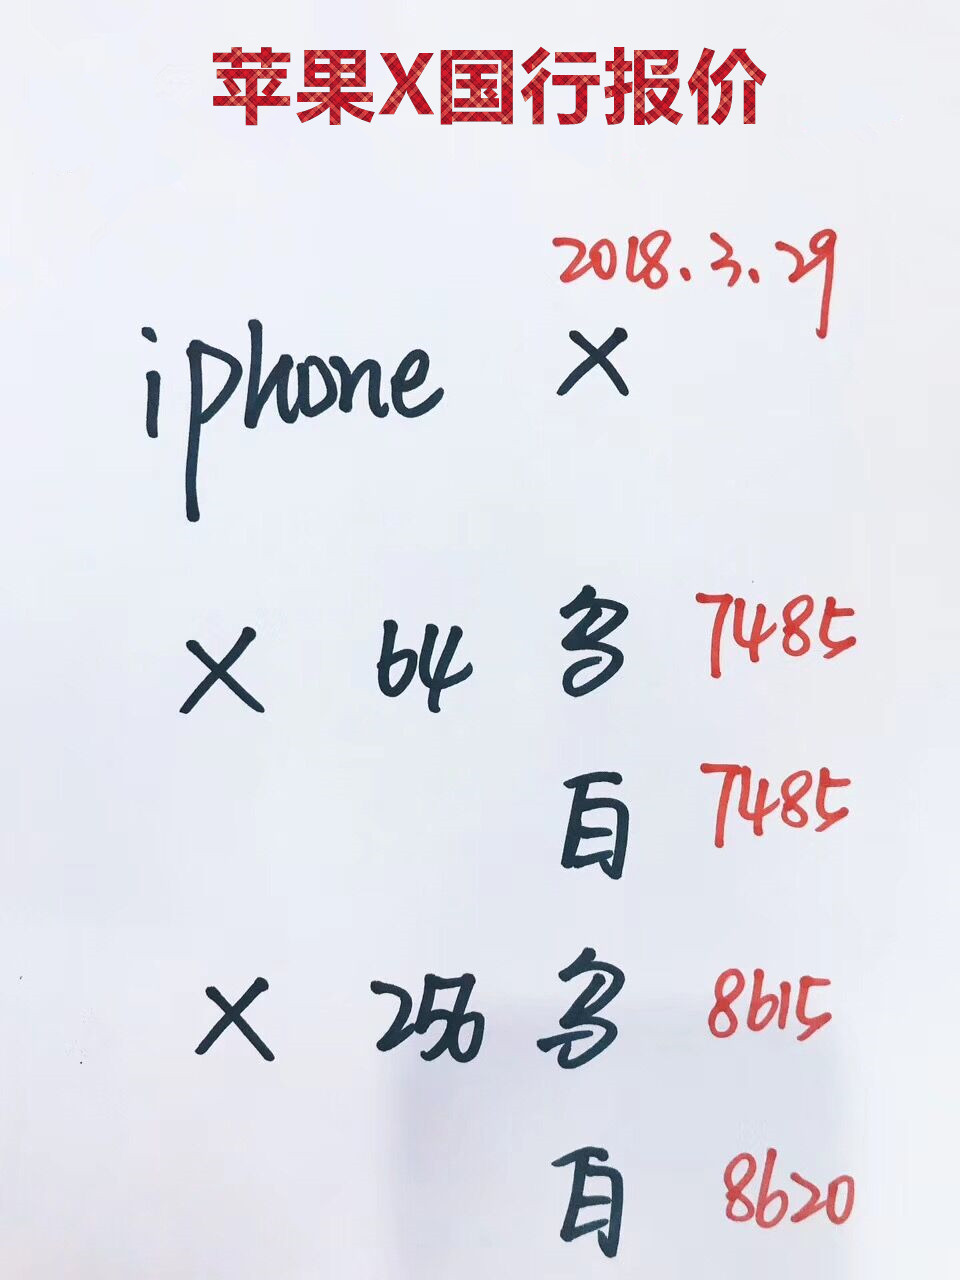 苹果X国行报价
2018.3.29
iphone X
X 64 7485
白 7485
X 256 8615
白 8620